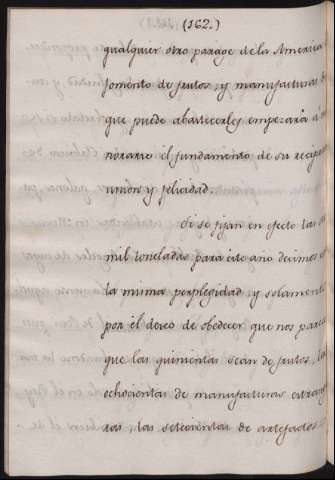 (162.)
qualquier otro parage de la America
fomento de frutos, y manufacturas
que puede abastecerles empezará á
norarse el fundamento de su recipr
union y felicidad.
Si se fijan en efecto las d
mil toneladas para este año decimos c
la misma perplegidad, y solamente
por el deseo de obedecer que nos parece
que las quinientas sean de frutos, l
ochocientas de manufacturas extrang
ras, las setecientas de artefactos